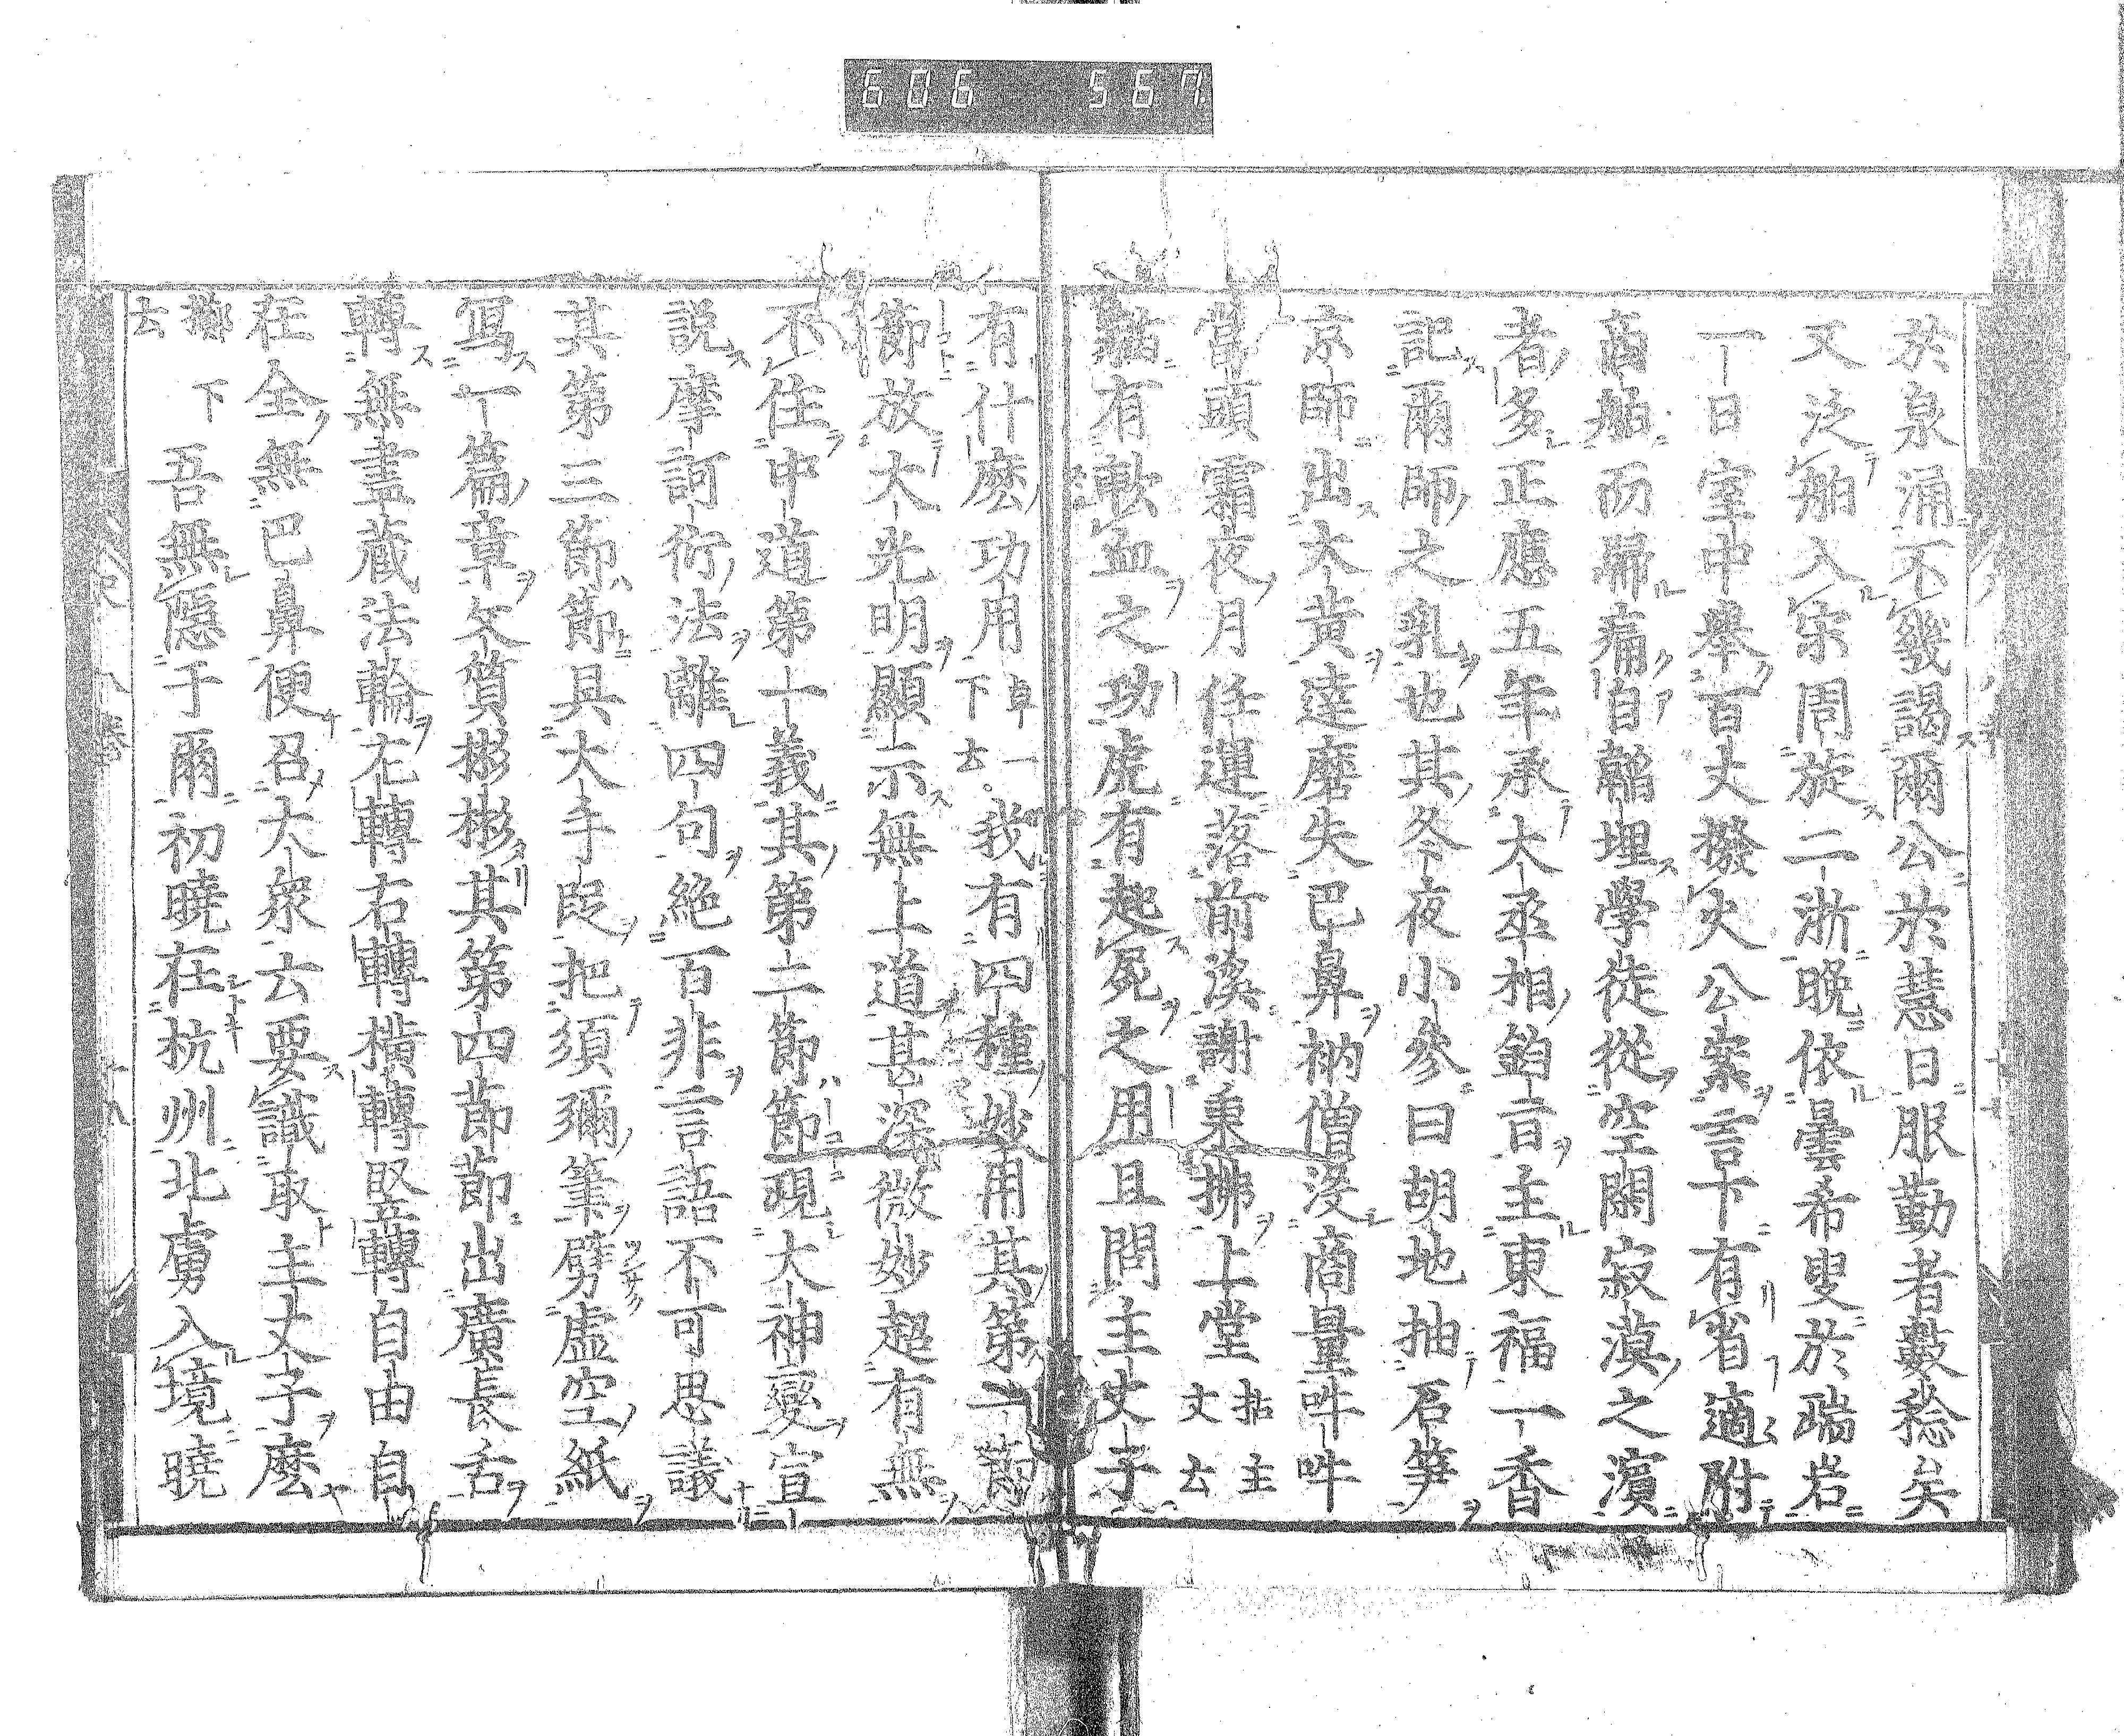 606 567
於泉涌不幾謁爾公於慧日服勤者數稔矣
又泛舶入宋周旋二浙晩依曇希叟於瑞岩
一日室中舉百丈撥火公案言下有省適附
商舶而歸痛自韜埋學徒從空閑寂漠之濱
者多正應五年承大丞相鈞旨主東福一香
記爾師之乳也其冬夜小參曰胡地抽石笋
京師出大黄達磨失巴鼻衲僧沒商量吽吽
當頭霜夜月任運落前溪謝秉拂上堂拈主丈云
猫有歃血之功虎有起屍之用且問主丈子
有什麽功用卓一下云我有四種妙用其第一節
節放大光明顯示無上道甚深微妙超有無
不住中道第十義其第二節節現大神變宣
説摩訶衍法離四句絶百非言語不可思議
其第三節節具大手段把須彌筆劈虛空紙
寫一篇章文質彬彬其第四節節出廣長舌
轉無盡藏法輪左轉右轉横轉竪轉自由自
在全無巴鼻便召大衆云要識取主丈子麽
擲下云吾無隱于爾初曉在杭州北虜入境曉